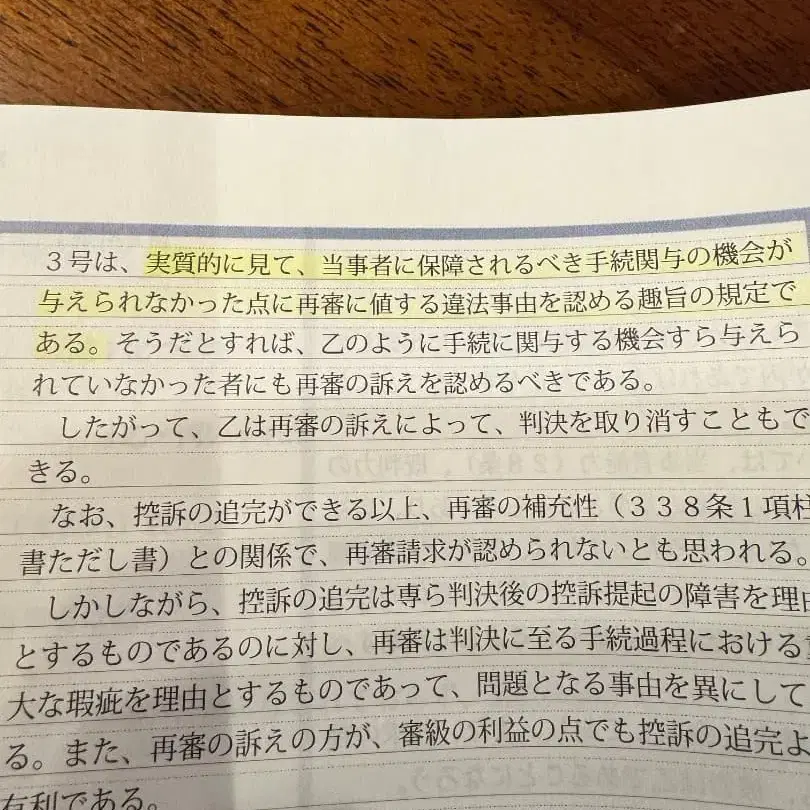 3号は、実質的に見て、当事者に保障されるべき手続関与の機会が
与えられなかった点に再審に値する違法事由を認める趣旨の規定で
ある。そうだとすれば、乙のように手続に関与する機会すら与えら
れていなかった者にも再審の訴えを認めるべきである。
したがって、乙は再審の訴えによって、判決を取り消すこともで
きる。
なお、控訴の追完ができる以上、再審の補充性（３３８条１項柱
書ただし書）との関係で、再審請求が認められないとも思われる。
しかしながら、控訴の追完は専ら判決後の控訴提起の障害を理由
とするものであるのに対し、再審は判決に至る手続過程における
大な瑕疵を理由とするものであって、問題となる事由を異にして
る。また、再審の訴えの方が、審級の利益の点でも控訴の追完よ
有利である。